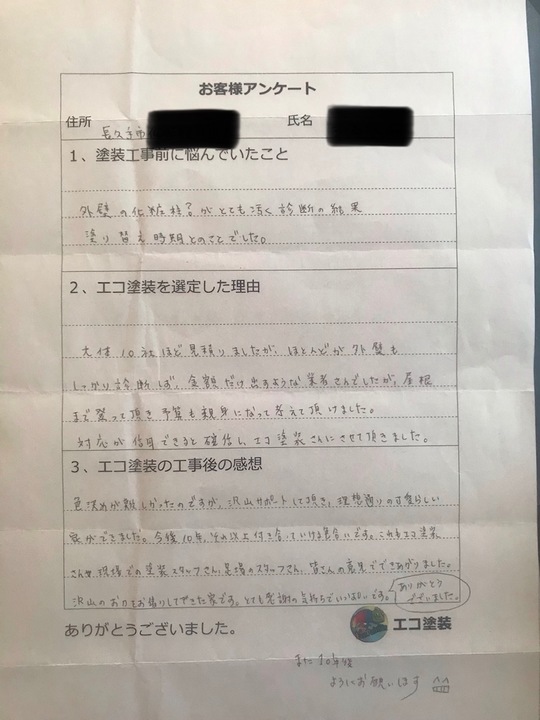 お客様アンケート
住所 長久手市 氏名
1、塗装工事前に悩んでいたこと
外壁の化粧柱?がとても汚く診断の結果
塗り替え時期とのことでした。
2、エコ塗装を選定した理由
大体10社ほど見積りしましたが、ほとんどが外壁も
しっかり診断しず、金額だけ出すような業者さんでしたが、屋根
まで登って頂き予算も親身になって考えて頂けました。
対応が信用できると確信し、エコ塗装さんにさせて頂きました。
3、エコ塗装の工事後の感想
色決めが難しかったのですが、沢山サポートして頂き、理想通りの可愛らしい
家ができました。今後10年、それ以上付き合っていける色合いです。これもエコ塗装
さんや現場での塗装スタッフさん、足場のスタッフさん、皆さんの意見でできあがりました。
沢山のお力をお借りしてできた家です。とても感謝の気持ちでいっぱいです。
ありがとう
ございました。
ありがとうございました。
エコ塗装
また10年後
よろしくお願いします